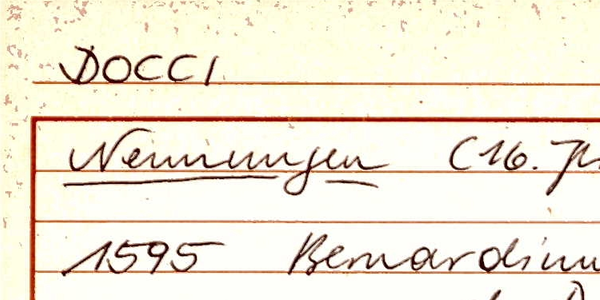 DOCCI
Nennungen (16. Jh
1595 Bernardinu